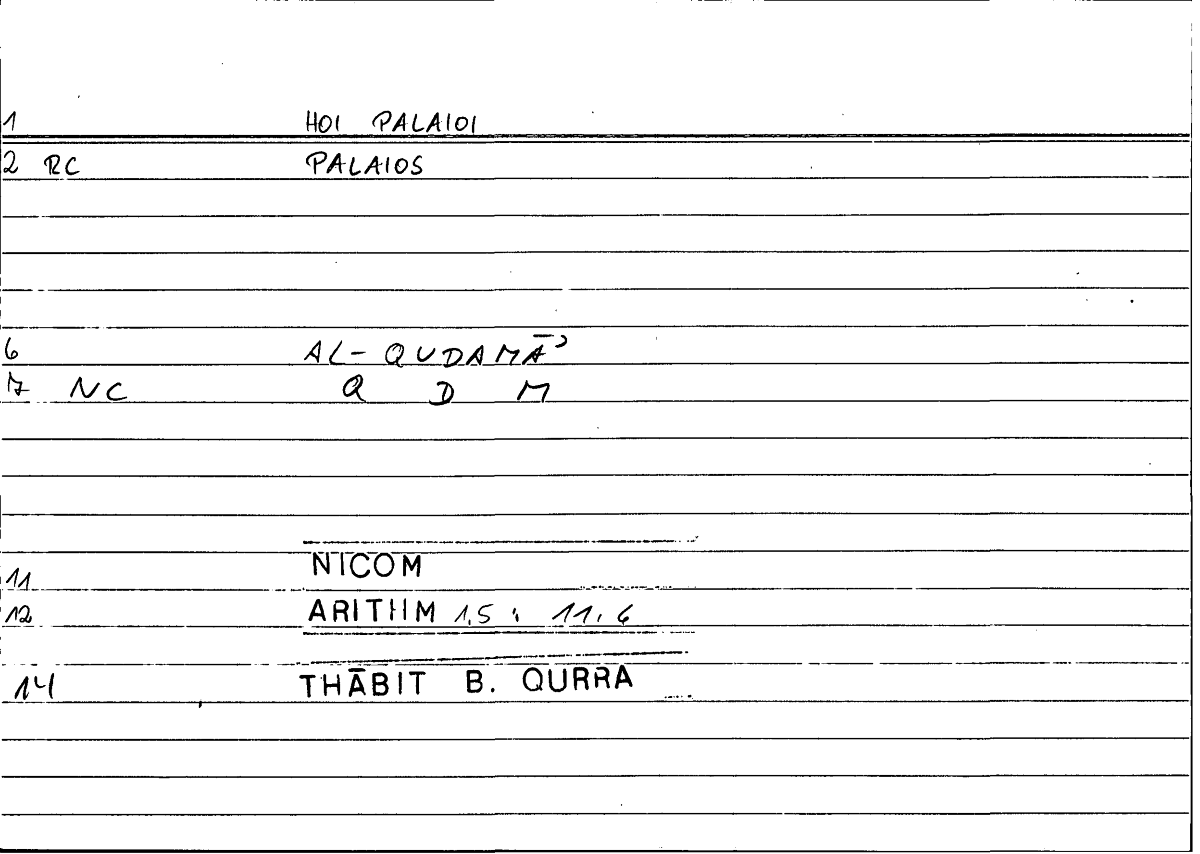 1 HOI PALAIOI
2 RC PALAIOS
6 AL-QUDAMĀʾ
7 NC Q D M
11 NICOM
12 ARITHM 1,5 : 11,6
14 THĀBIT B. QURRA